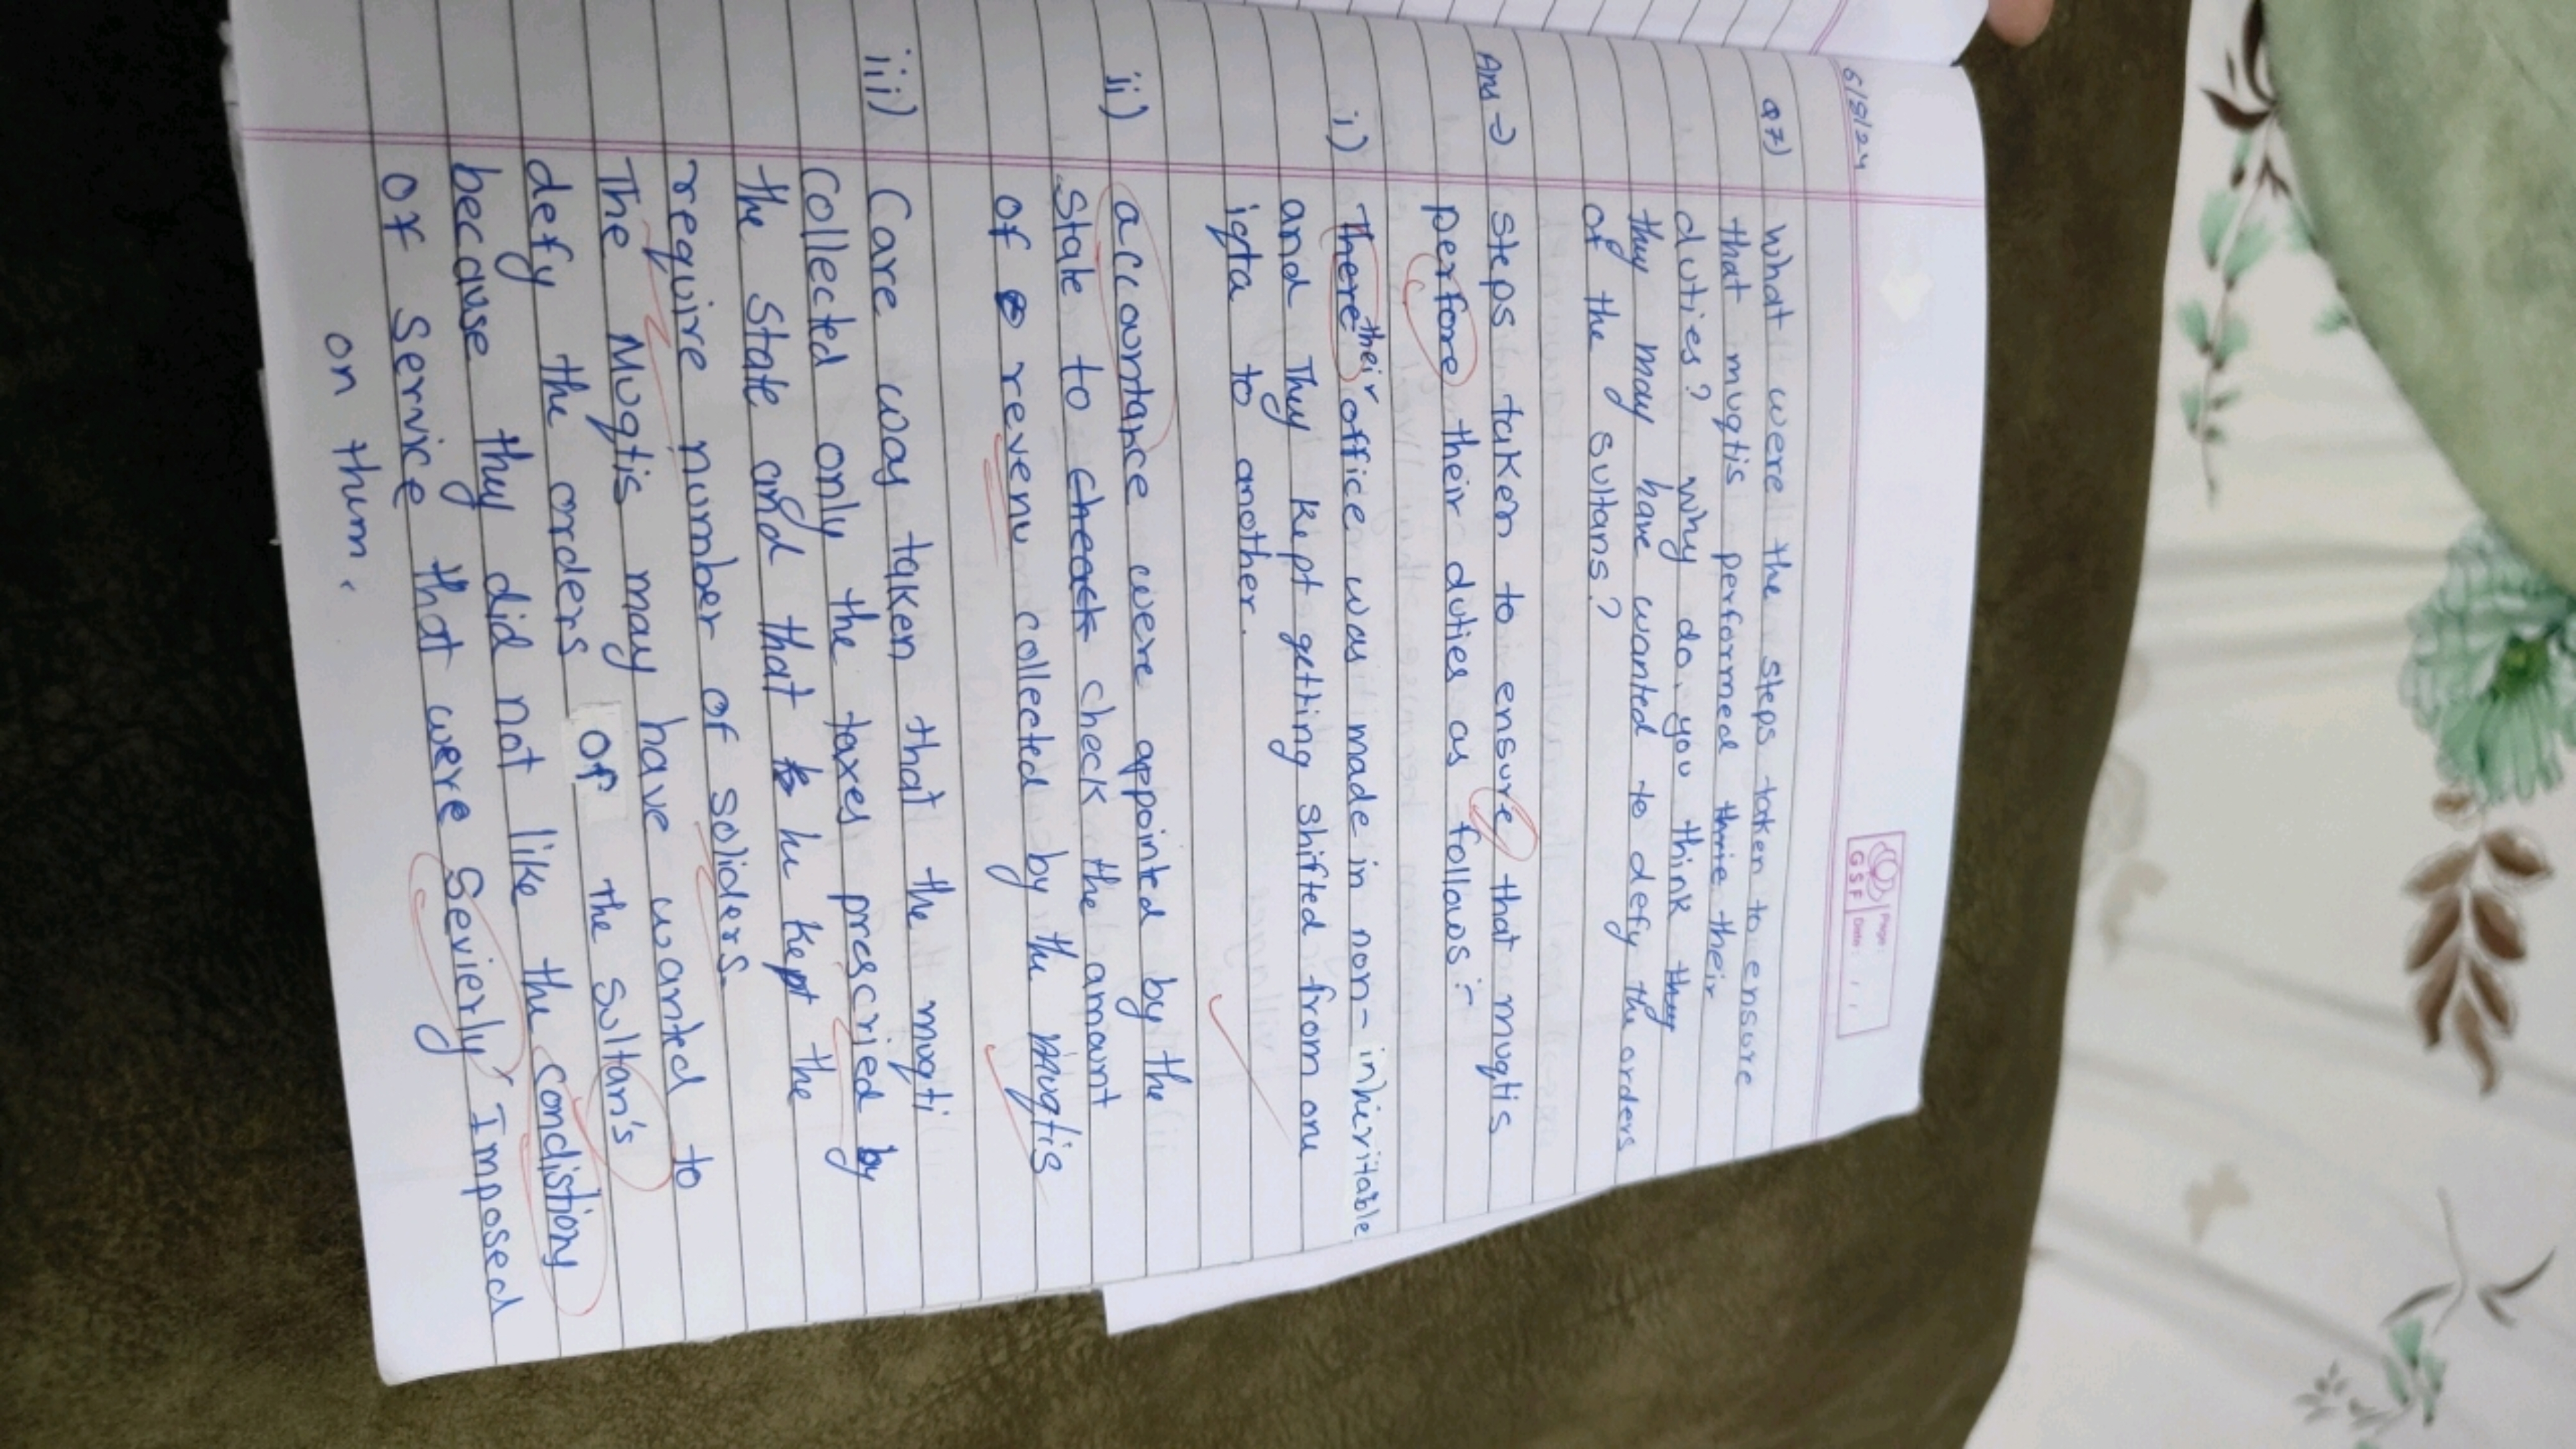 6/9/24
GSF
Page:
Date:
Q7) What were the steps taken to ensure
that muqtis performed thrie their
duties? why do you think they
they may have wanted to defy the orders
of the sultans?
Ans → Steps taken to ensure that muqtis
perfore their duties as follows :-
i) There their office was made in non-inheritable
and They kept getting shifted from one
iqta to another.
ii) accountance were appointed by the
State to cheack check the amount
of revenu collected by the muqtis
iii) Care was taken that the muqti
Collected only the taxes prescried by
the State and that he kept the
require number of soliders.
The Muqtis may have wanted to
defy the orders of the sultan's
because they did not like the condistions
of Service that were Sevierly Imposed
on them.